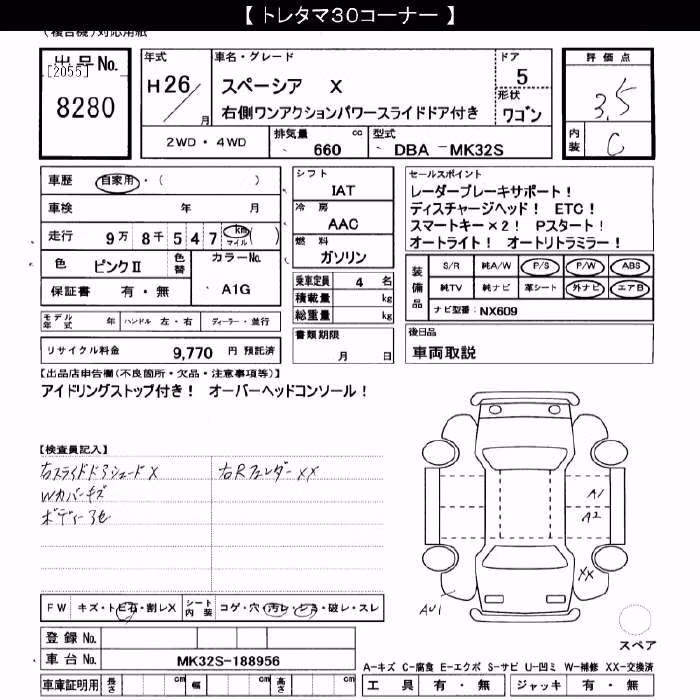 【トレタマ30コーナー】
(複合機)対応用紙
出品No.
[2055]
8280
年式
H26/月
車名・グレード
スペーシア X
右側ワンアクションパワースライドドア付き
ドア
5
形状
ワゴン
評価点
3.5
内装
C
2WD・4WD
排気量 cc
660
型式
DBA －MK32S
車歴 自家用・( )
車検 年 月
走行 9万 8千 5 4 7 km マイル ( )
色 ピンクⅡ 色替
カラーNo.
A1G
保証書 有・無
シフト
IAT
冷房
AAC
燃料
ガソリン
乗車定員 4 名
積載量 kg
総重量 kg
セールスポイント
レーダーブレーキサポート！
ディスチャージヘッド！ ETC！
スマートキー×2！ Pスタート！
オートライト！ オートリトラミラー！
装備品
S/R 純A/W P/S P/W ABS
純TV 純ナビ 革シート 外ナビ エアB
ナビ型番： NX609
モデル年式 年 ハンドル 左・右 ディーラー・並行
書類期限
月 日
後日品
車両取説
リサイクル料金 9,770 円 預託済
【出品店申告欄(不良箇所・欠品・注意事項等)】
アイドリングストップ付き！ オーバーヘッドコンソール！
【検査員記入】
右スライドドアシェードX 右Rフェンダー XX
Wカバーキズ
ボディー3色
A1
A2
XX
AU1
FW キズ・トビ石・割レX
シート内装 コゲ・穴・汚レ・シミ・破レ・スレ
スペア
登録No.
車台No. MK32S-188956
A-キズ C-腐食 E-エクボ S-サビ U-凹ミ W-補修 XX-交換済
車庫証明用 長さ cm 幅 cm 高さ cm
工具 有・無 ジャッキ 有・無